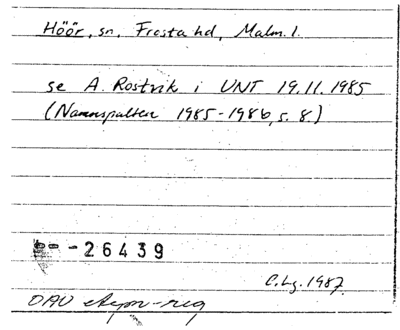 Höör, sn, Frosta hd, Malm. l.
se A. Rostvik i UNT 19.11.1985
(Namnspalten 1985-1986, s. 8.)
-26439
C.Lg. 1987.
OAU